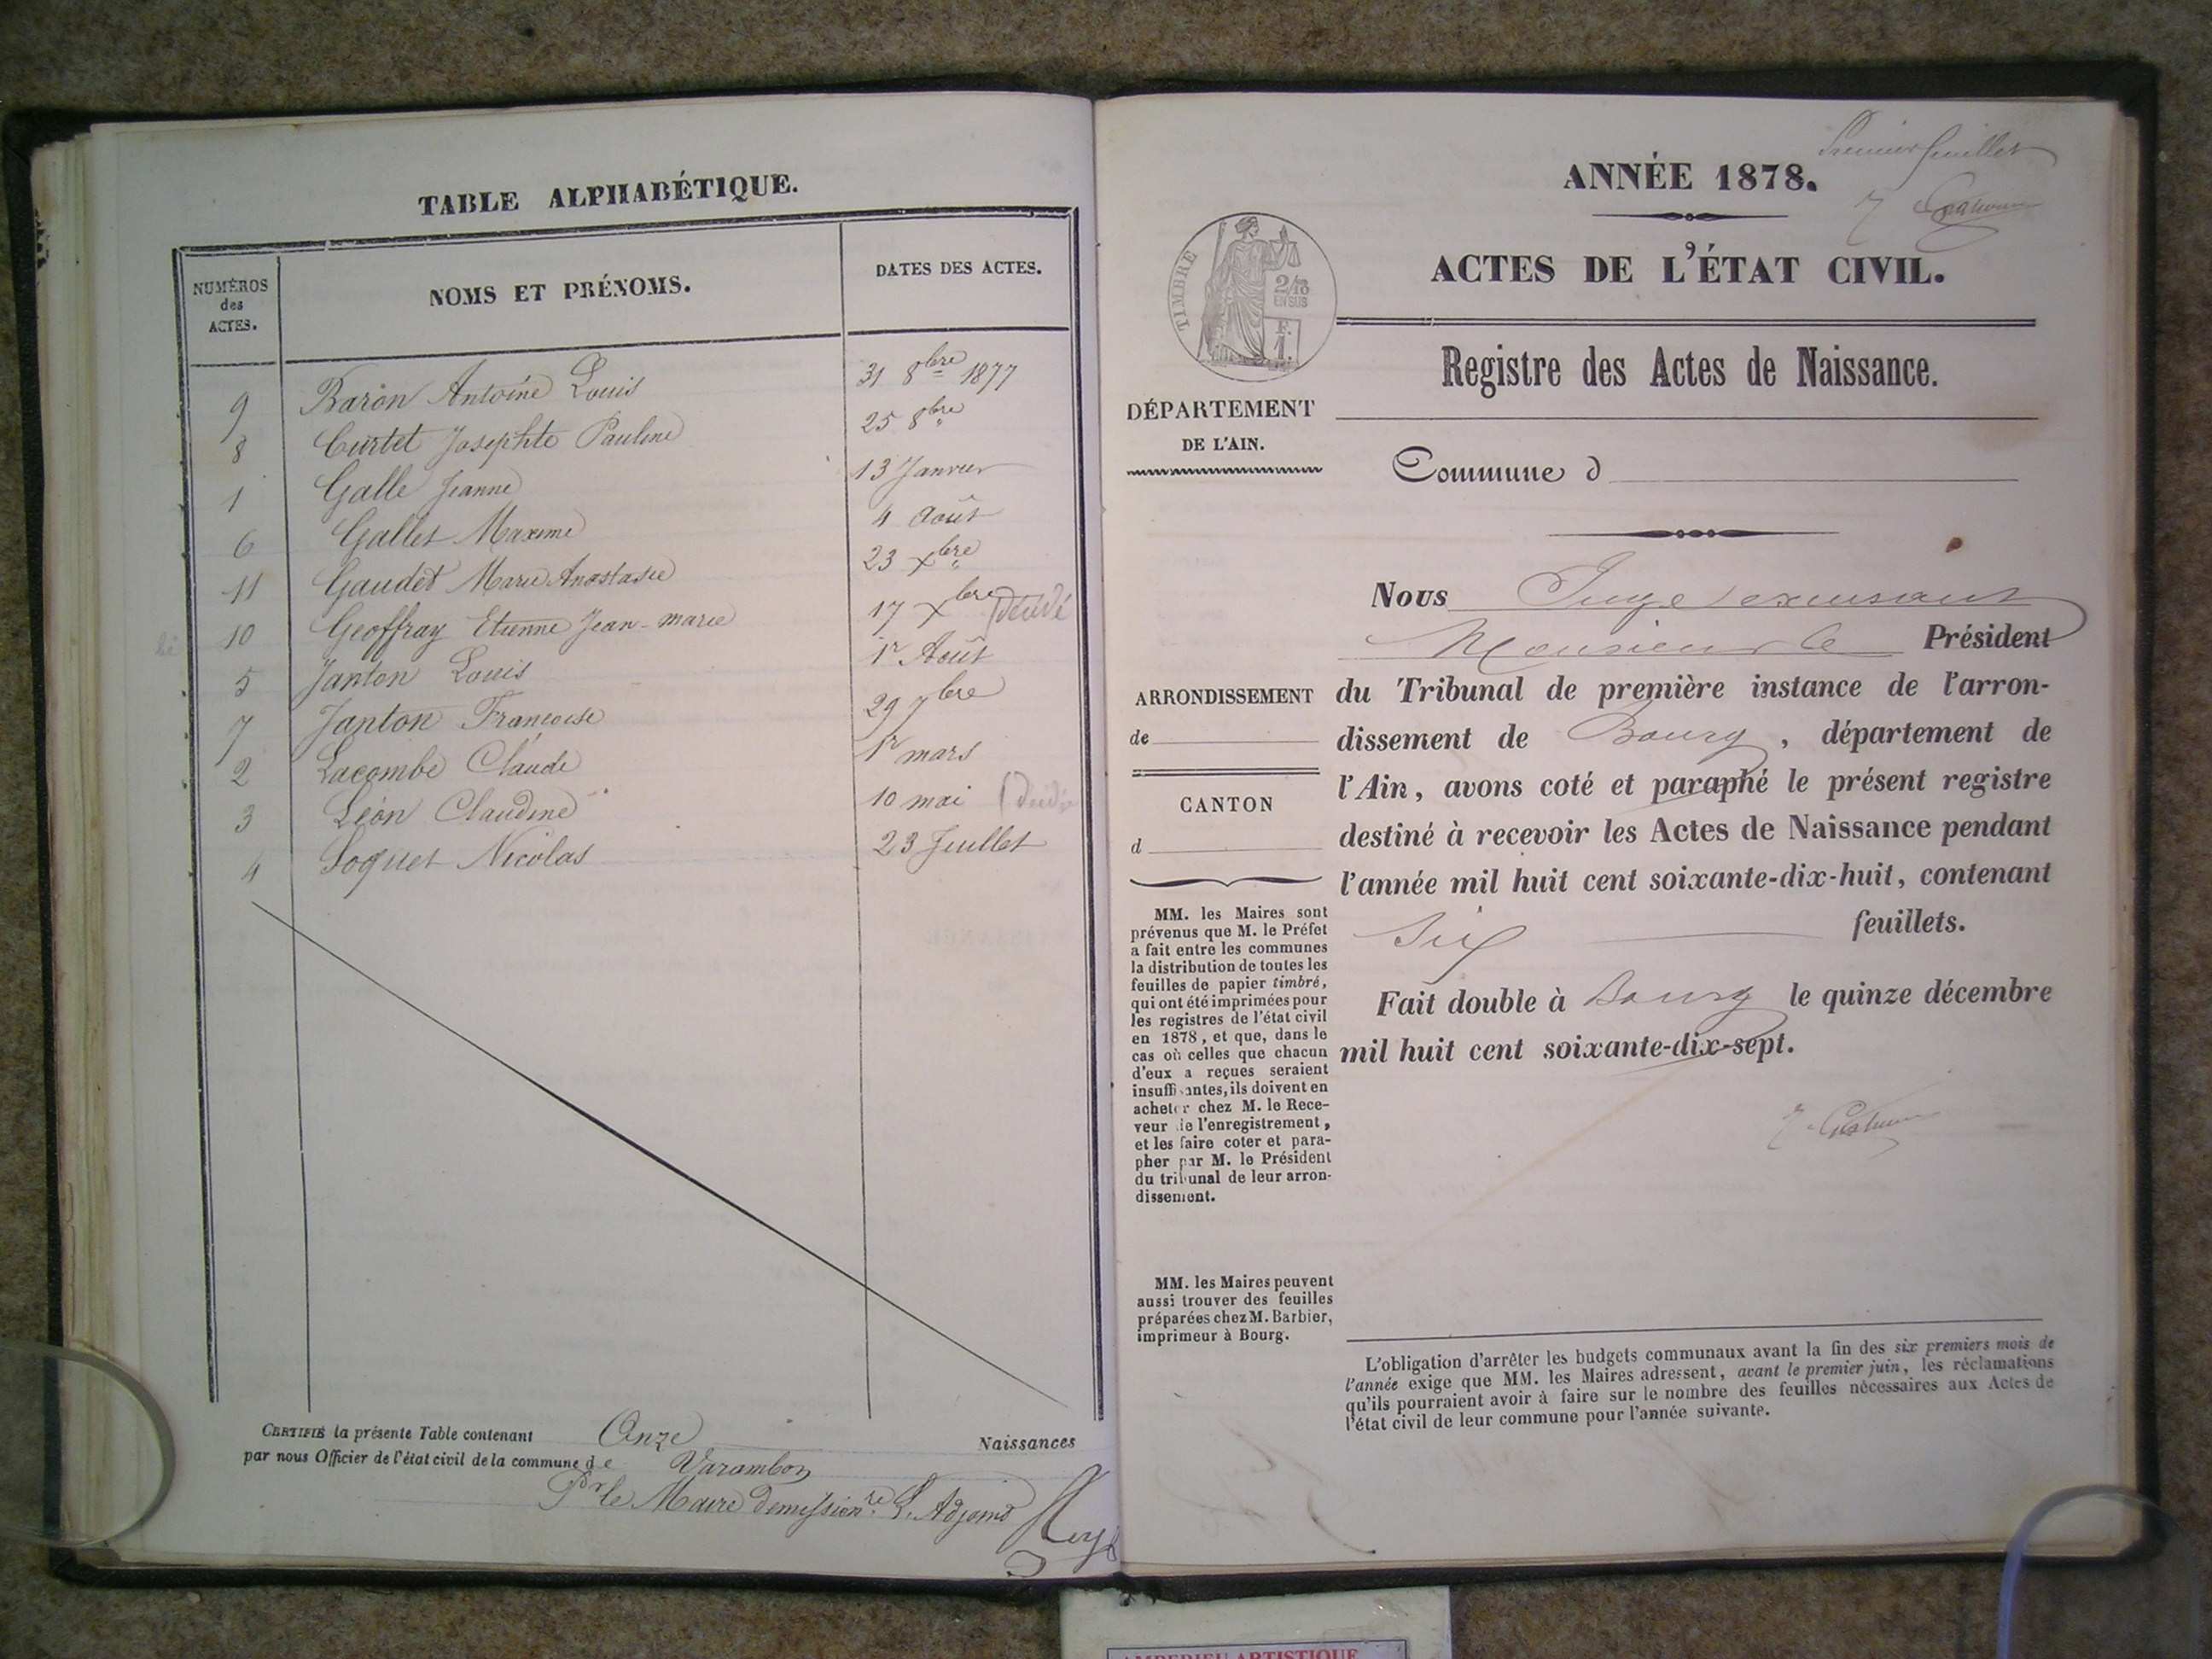 TABLE ALPHABÉTIQUE.
NUMÉROS des ACTES.
NOMS ET PRÉNOMS.
DATES DES ACTES.
9 Baron Antoine Louis 31 8bre 1877
8 Curtet Josephte Pauline 25 8bre "
1 Galle Jeanne 13 Janvier
6 Gallet Maxime 4 Août
11 Gaudet Marie Anastasie 23 xbre "
10 Geoffray Etienne Jean-marie 17 xbre (décédé
5 Janton Louis 1r Août
7 Janton Françoise 29 7bre
2 Lacombe Claude 1r mars
3 Léon Claudine 10 mai
4 Loquet Nicolas 23 Juillet
CERTIFIÉ la présente Table contenant Onze Naissances
par nous Officier de l'état civil de la commune de Varambon
Pr le Maire démissionre L. Adjoint
Premier feuillet
ANNÉE 1878.
ACTES DE L'ÉTAT CIVIL.
TIMBRE
2/10
EN SUS
F.
1.
Registre des Actes de Naissance.
DÉPARTEMENT
DE L'AIN.
Commune d
Nous Juge
Monsieur le Président
ARRONDISSEMENT
de
CANTON
d
du Tribunal de première instance de l'arron-
dissement de Bourg, département de
l'Ain, avons coté et paraphé le présent registre
destiné à recevoir les Actes de Naissance pendant
l'année mil huit cent soixante-dix-huit, contenant
Six feuillets.
Fait double à Bourg le quinze décembre
mil huit cent soixante-dix-sept.
MM. les Maires sont
prévenus que M. le Préfet
a fait entre les communes
la distribution de toutes les
feuilles de papier timbré,
qui ont été imprimées pour
les registres de l'état civil
en 1878, et que, dans le
cas où celles que chacun
d'eux a reçues seraient
insuffisantes, ils doivent en
acheter chez M. le Rece-
veur de l'enregistrement,
et les faire coter et para-
pher par M. le Président
du tribunal de leur arron-
dissement.
MM. les Maires peuvent
aussi trouver des feuilles
préparées chez M. Barbier,
imprimeur à Bourg.
L'obligation d'arrêter les budgets communaux avant la fin des six premiers mois de
l'année exige que MM. les Maires adressent, avant le premier juin, les réclamations
qu'ils pourraient avoir à faire sur le nombre des feuilles nécessaires aux Actes de
l'état civil de leur commune pour l'année suivante.
AMBERIEU ARTISTIQUE